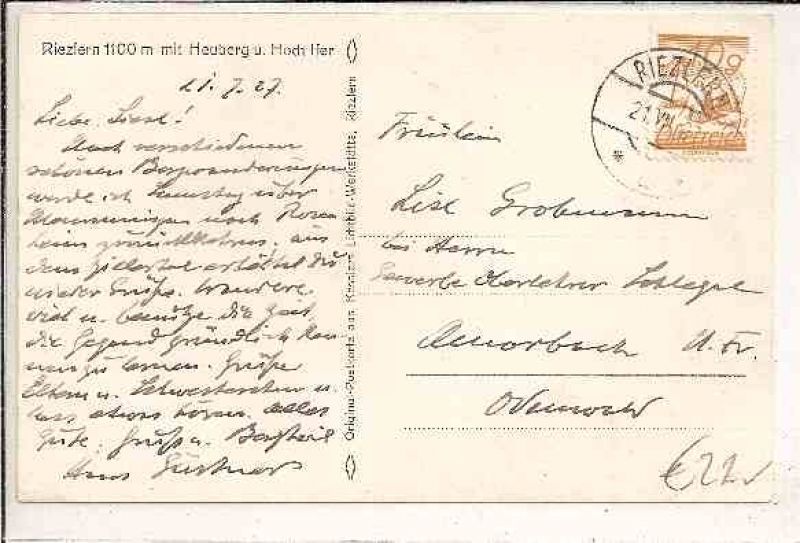 Riezlern 1100 m mit Heuberg u. Hoch Ifer
21.7.27.
Liebe Liesl!
Nach verschiedenen
schönen Bergwanderungen
werde ich Samstag über
nach Rosen
heim zurückkehren. aus
dem Zillertal erhältst Du
wieder Grüße. Wandere
viel u. benütze die Zeit,
die Gegend gründlich ken
nenzulernen. Grüße
Eltern u. Schwesterchen u.
lass etwas hören. Alles
Gute. Gruß u. Bergheil
Hans
Original-Postkarte aus Lichtbild-Werkstätte, Riezlern
40 g
Österreich
RIEZLERN
21.VII
Fräulein
Lisl Grobmann
bei Herrn
Gewerbe
Amorbach U. Fr.
Odenwald
€22